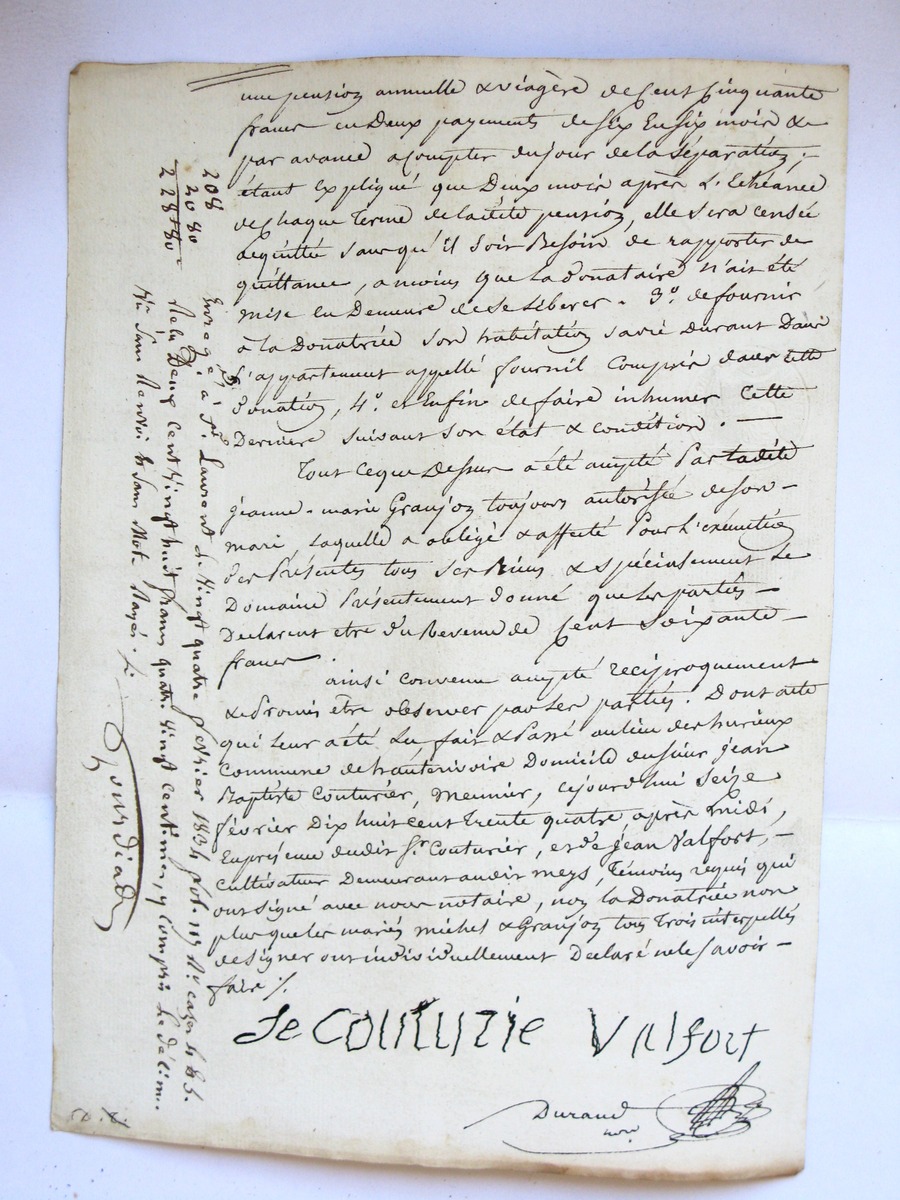 une pension annuelle & viagère de Cent Cinquante
francs en Deux payements de Six En Six mois &
par avance a compter du jour de la Séparation ;
étant Expliqué que Deux mois après L'Echéance
de Chaque Terme de la dite pension, elle sera censée
acquittée sans qu'il soit Besoin de rapporter de
quittance, a moins que La donataire n'ait été
mise en Demeure de se Libérer. 3°. de fournir
à la Donatrice son habitation sa vie Durant Dans
L'appartement appellé fournil Compris dans cette
Donation, 4°. et Enfin de faire inhumer Cette
Dernière suivant son état & condition. —
Tout ce que Dessus a été accepté Par ladite
jeanne-marie Granjon toujours autorisée de son —
mari, laquelle a obligé & affecté Pour L'exécution
des Présentes tous ses Biens & spécialement Le
Domaine Présentement donné que Les parties —
Declarent etre d'un Revenu de Cent Soixante —
francs.
ainsi convenu accepté réciproquement
& Promis être observer par Les parties. Dont acte
qui leur a été Lu fait & Passé au lieu des hurieux
Commune de hauterivoire Domicile du sieur jean
Baptiste Couturier, meunier, cejourd'hui Seize
février Dix huit cent Trente quatre après Midi,
En présence dudit Sr. Couturier, et de jean Valfort, —
Cultivateur Demeurant audit meys, Témoins requis qui
ont signé avec nous notaire, non la Donatrice non
plus que les mariés michel & Granjon tous Trois interpellés
de signer ont individuellement Declaré ne le Savoir —
faire ./.
Valfort
Durand
nore
208
20 80
228 80
Enregé à St. Laurent le Vingt quatre février 1834 vol. 115
Reçu Deux Cent Vingt huit francs quatre Vingt Centimes, y compris Le décime.
Sans Renvoi & Sans Mot Rayé.